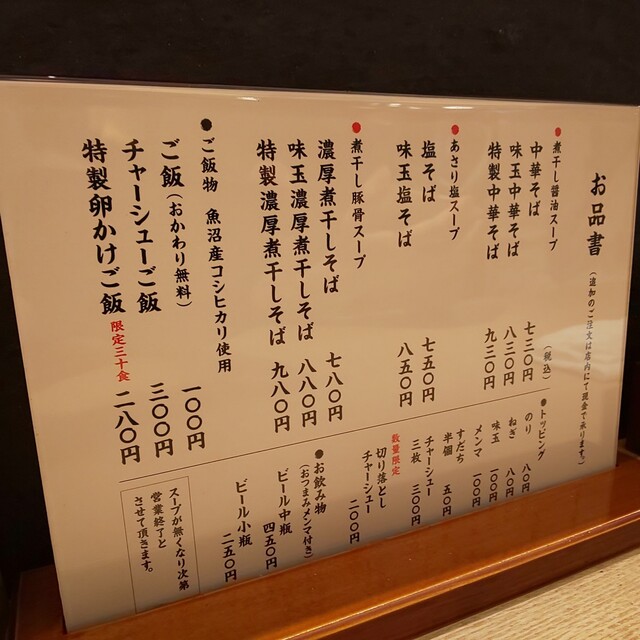 お品書
（追加のご注文は店内にて現金で承ります。）
（税込）
●煮干し醤油スープ
中華そば 七三〇円
味玉中華そば 八三〇円
特製中華そば 九三〇円
●あさり塩スープ
塩そば 七五〇円
味玉塩そば 八五〇円
●煮干し豚骨スープ
濃厚煮干しそば 七八〇円
味玉濃厚煮干しそば 八八〇円
特製濃厚煮干しそば 九八〇円
●ご飯物 魚沼産コシヒカリ使用
ご飯（おかわり無料） 一〇〇円
チャーシューご飯 三〇〇円
特製卵かけご飯 限定三十食 二八〇円
●トッピング
のり 八〇円
ねぎ 八〇円
味玉 一〇〇円
メンマ 一〇〇円
すだち
半個 五〇円
チャーシュー
三枚 三〇〇円
数量限定
切り落とし
チャーシュー 二〇〇円
●お飲み物
（おつまみメンマ付き）
ビール中瓶 四五〇円
ビール小瓶 二五〇円
スープが無くなり次第
営業終了と
させて頂きます。